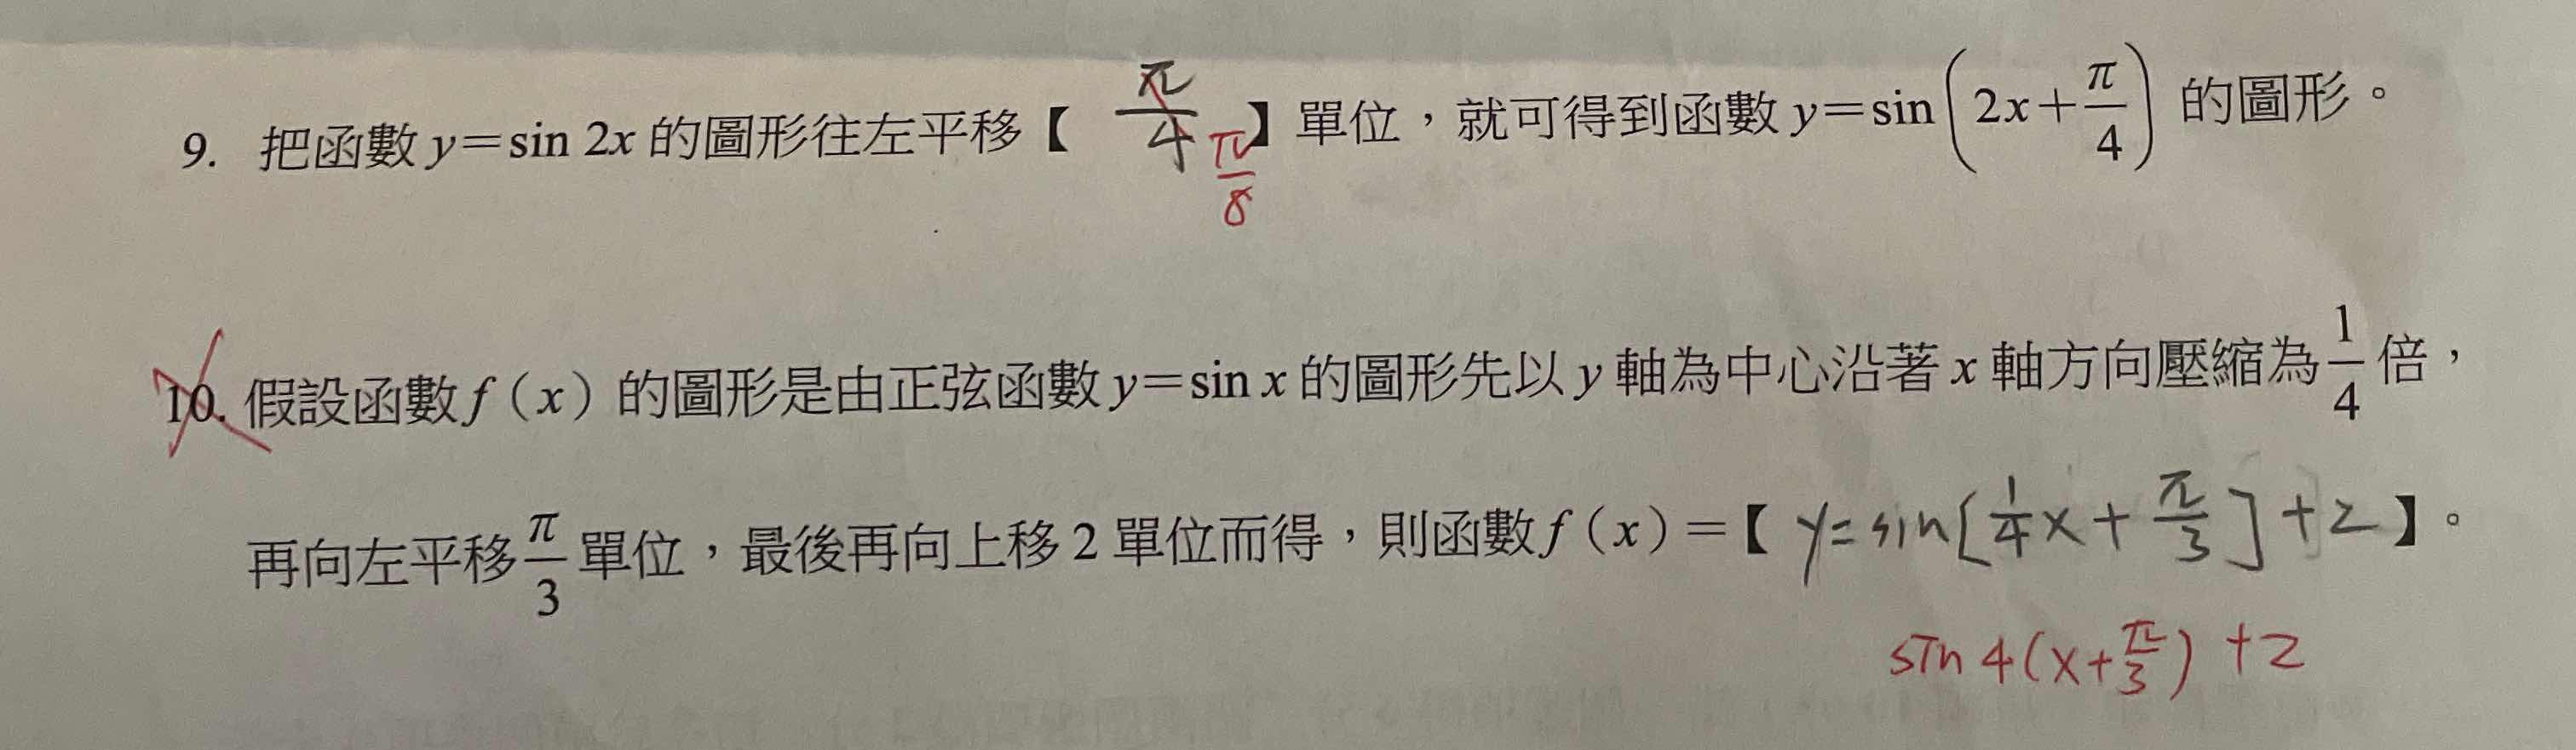 9. 把函數 y=sin 2x 的圖形往左平移【 π/4 π/8 】單位，就可得到函數 y=sin(2x+π/4) 的圖形。
10. 假設函數 f（x）的圖形是由正弦函數 y=sin x 的圖形先以 y 軸為中心沿著 x 軸方向壓縮為 1/4 倍，
再向左平移 π/3 單位，最後再向上移 2 單位而得，則函數 f（x）=【 y=sin[1/4x+π/3]+2 】。
sin 4(x+π/3)+2